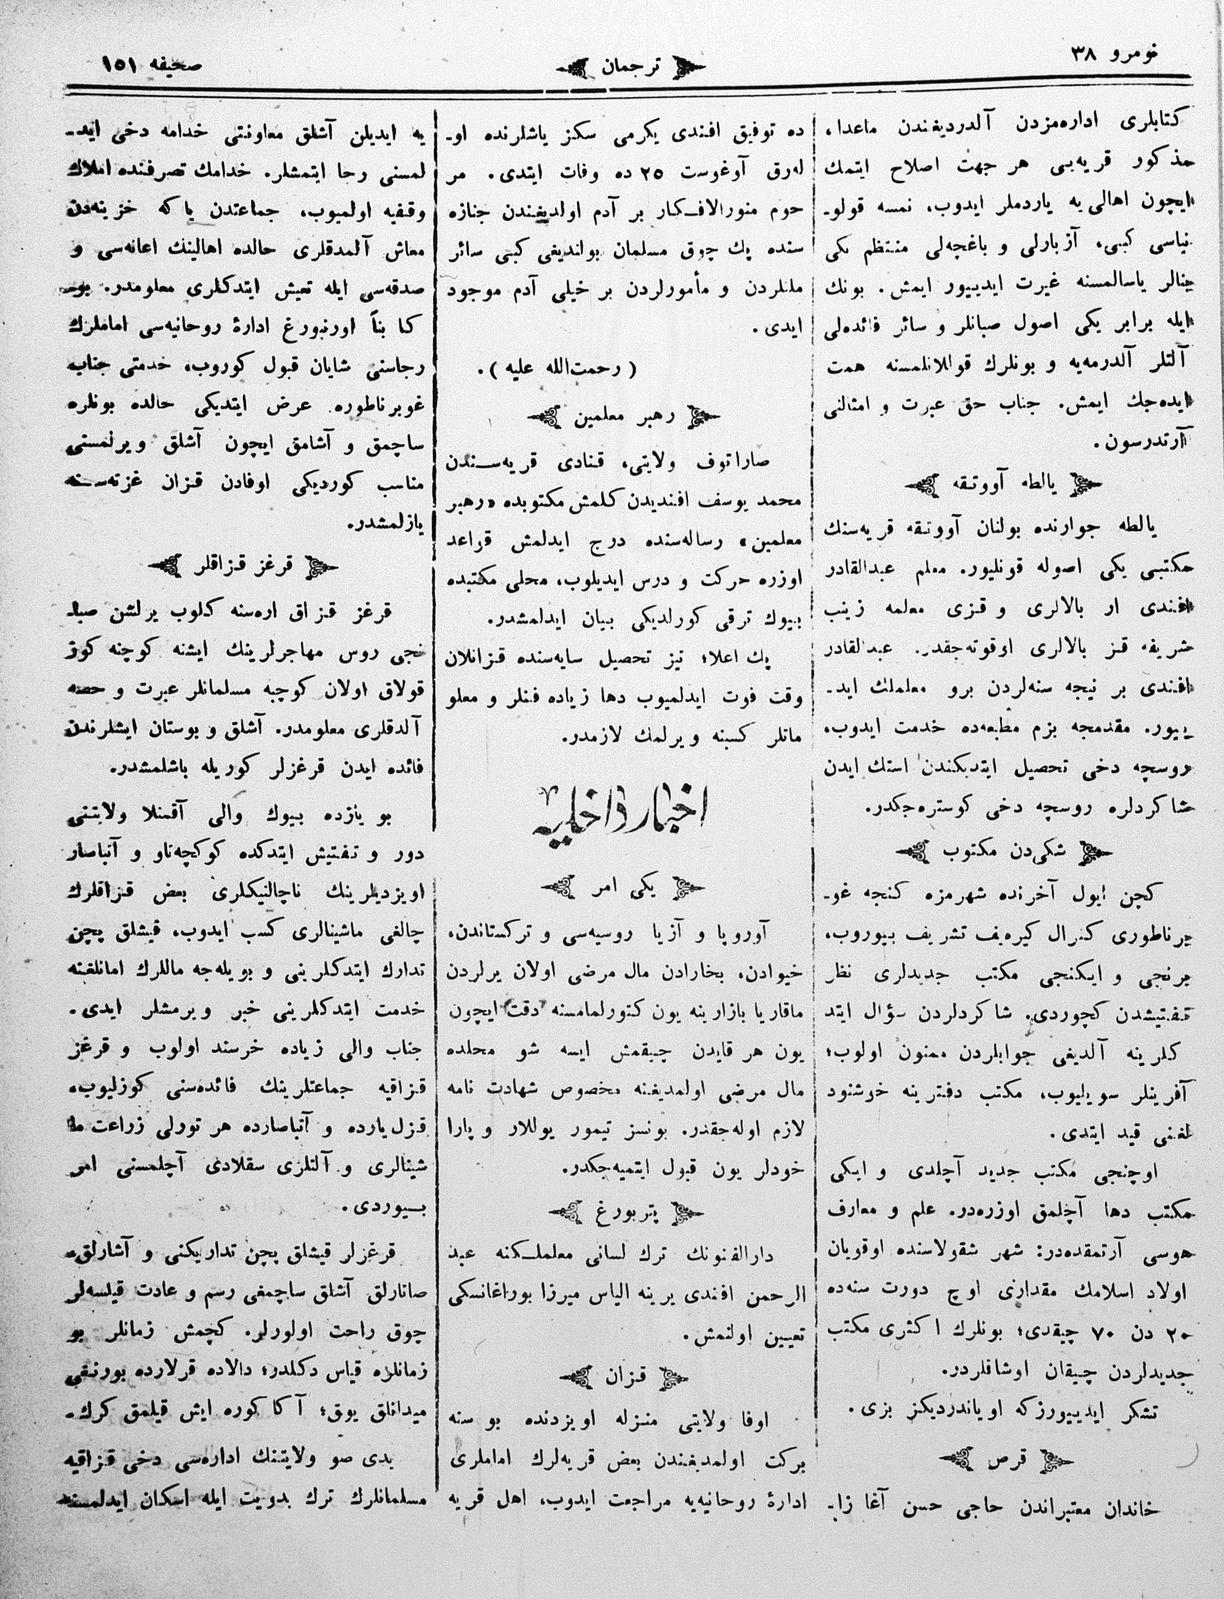 نومرو ٣٨
ترجمان
صحیفه ١٥١
كتابلری اداره‌مزدن آلدردیغندن ماعدا،
مذكور قریه‌یی هر جهت اصلاح ایتمك
ایچون اهالی‌یه یاردملر ایدوب، نمسه قولو-
نیاسی كبی، آزبارلی و باغچه‌لی منتظم یكی
بنالر یاسالمسنه غیرت ایدییور ایمش. بونك
ایله برابر یكی اصول صبانلر و سائر فائده‌لی
آلتلر آلدرمه‌یه و بونلرك قوللانلمسنه همت
ایده‌جك ایمش. جناب حق عبرت و امثالنی
آرتدرسون.
یالطه آووتقه
یالطه جوارنده بولنان آووتقه قریه‌سنك
مكتبی یكی اصوله قونلیور. معلم عبدالقادر
افندی ار بالالری و قزی معلمه زینب
شریفه قز بالالری اوقوته‌جقدر. عبدالقادر
افندی بر نیجه سنه‌لردن برو معلملك اید-
ییور. مقدمجه بزم مطبعه‌ده خدمت ایدوب،
روسچه دخی تحصیل ایتدیكندن استك ایدن
شاكردلره روسچه دخی كوستره‌جكدر.
شكی‌دن مكتوب
كچن ایول آخرنده شهرمزه كنجه غو-
برناطوری كنرال كیره‌یف تشریف بیوروب،
برنجی و ایكنجی مكتب جدیدلری نظر
تفتیشدن كچوردی. شاكردلردن سؤال ایتد
كلرینه آلدیغی جوابلردن ممنون اولوب؛
آفرینلر سویلیوب، مكتب دفترینه خوشنود
لغنی قید ایتدی.
اوچنجی مكتب جدید آچلدی و ایكی
مكتب دها آچلمق اوزره‌در. علم و معارف
هوسی آرتمقده‌در: شهر شقولاسنده اوقویان
اولاد اسلامك مقداری اوچ دورت سنه‌ده
٢٠ دن ٧٠ چیقدی؛ بونلرك اكثری مكتب
جدیدلردن چیقان اوشاقلردر.
تشكر ایدییورزكه اویاندردیكز بزی.
قرص
خاندان معتبراندن حاجی حسن آغا زا-
ده توفیق افندی یكرمی سكز یاشلرنده او-
له‌رق آوغوست ٢٥ ده وفات ایتدی. مر
حوم منورالافكار بر آدم اولدیغندن جنازه
سنده پك چوق مسلمان بولندیغی كبی سائر
ملتلردن و مأمورلردن بر خیلی آدم موجود
ایدی.
(رحمت‌الله علیه).
رهبر معلمین
صاراتوف ولایتی، قنادی قریه‌سندن
محمد یوسف افندیدن كلمش مكتوبده «رهبر
معلمین» رساله‌سنده درج ایدلمش قراعد
اوزره حركت و درس ایدیلوب، محلی مكتبده
بیوك ترقی كورلدیكی بیان ایدلمشدر.
پك اعلا؛ تیز تحصیل سایه‌سنده قزانلان
وقت فوت ایدلمیوب دها زیاده فنلر و معلو
ماتلر كسبنه ویرلمك لازمدر.
اخبار داخلیه
یكی امر
آوروپا و آزیا روسیه‌سی و تركستاندن،
خیوادن، بخارادن مال مرضی اولان یرلردن
ماقاریا بازارینه یون كتورلمامسنه دقت ایچون
یون هر قایدن چیقمش ایسه شو محلده
مال مرضی اولمدیغنه مخصوص شهادت نامه
لازم اوله‌جقدر. بونسز تیمور یوللار و پارا
خودلر یون قبول ایتمیه‌جكدر.
پتربورغ
دارالفنونك ترك لسانی معلملكنه عبد
الرحمن افندی یرینه الیاس میرزا بوراغانسكی
تعیین اولنمش.
قزان
اوفا ولایتی منزله اویزدنده بو سنه
بركت اولمدیغندن بعض قریه‌لرك اماملری
ادارۀ روحانیه‌یه مراجعت ایدوب، اهل قریه
یه ایدیلن آشلق معاونتی خدامه دخی اید-
لمسنی رجا ایتمشلر. خدامك تصرفنده املاك
وقفیه اولمیوب، جماعتدن یاكه خزینه‌دن
معاش آلمدقلری حالده اهالینك اعانه‌سی و
صدقه‌سی ایله تعیش ایتدكلری معلومدر. بو-
كا بناً اورنبورغ ادارۀ روحانیه‌سی اماملرك
رجاسنی شایان قبول كوروب، خدمتی جناب
غوبرناطوره عرض ایتدیكی حالده بونلره
ساچمق و آشامق ایچون آشلق ویرلمسنی
مناسب كوردیكی اوفادن قزان غزته‌سنه
یازلمشدر.
قرغز قزاقلر
قرغز قزاق اره‌سنه كلوب یرلشن صبا-
نجی روس مهاجرلرینك ایشنه كوچنه كوز
قولاق اولان كوچبه مسلمانلر عبرت و حصه
آلدقلری معلومدر. آشلق و بوستان ایشلرندن
فائده ایدن قرغزلر كوریله باشلمشدر.
بو یازده بیوك والی آقمنلا ولایتنی
دور و تفتیش ایتدكده كوكچه‌تاو و آتباصار
اویزدیلرینك ناچالنیكلری بعض قزاقلرك
چالغی ماشینالری كسب ایدوب، قیشلق پچن
تدارك ایتدكلرینی و بویله‌جه ماللرك امانلغنه
خدمت ایتدكلرینی خبر ویرمشلر ایدی.
جناب والی زیاده خرسند اولوب و قرغز
قزاقیه جماعتلرینك فائده‌سنی كوزلیوب،
قزل‌یارده و آتباصارده هر تورلی زراعت ما
شینالری و آلتلری سقلادی آچلمسنی امر
بیوردی.
قرغزلر قیشلق پچن تداریكنی و آشارلق-
صاتارلق آشلق ساچمغی رسم و عادت قیلسه‌لر
چوق راحت اولورلر. كچمش زمانلر بو
زمانلره قیاس دكلدر؛ دالاده قرلارده بورنقی
میدانلق یوق؛ آكا كوره ایش قیلمق كرك.
یدی صو ولایتنك اداره‌سی دخی قزاقیه
مسلمانلرك ترك بدویت ایله اسكان ایدلمسنه